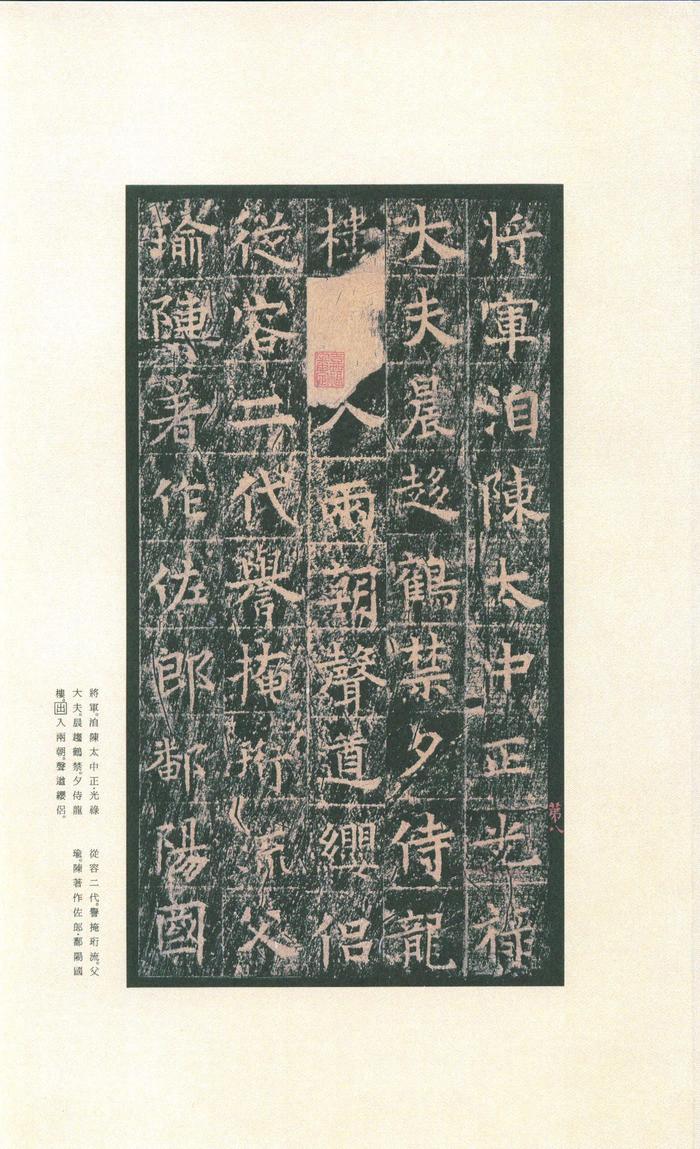 將軍洎陳太中正光祿
大夫晨趍鶴禁夕侍龍
樓入兩朝聲遒纓侣
從容二代譽掩珩流父
瑜陳著作佐郎鄱陽國
第八
將軍。洎陳太中正・光綠
大夫。晨趨鶴禁。夕侍龍
樓。出入兩朝。聲遒纓侶。
從容二代。譽掩珩流。父
瑜。陳著作佐郎・鄱陽國